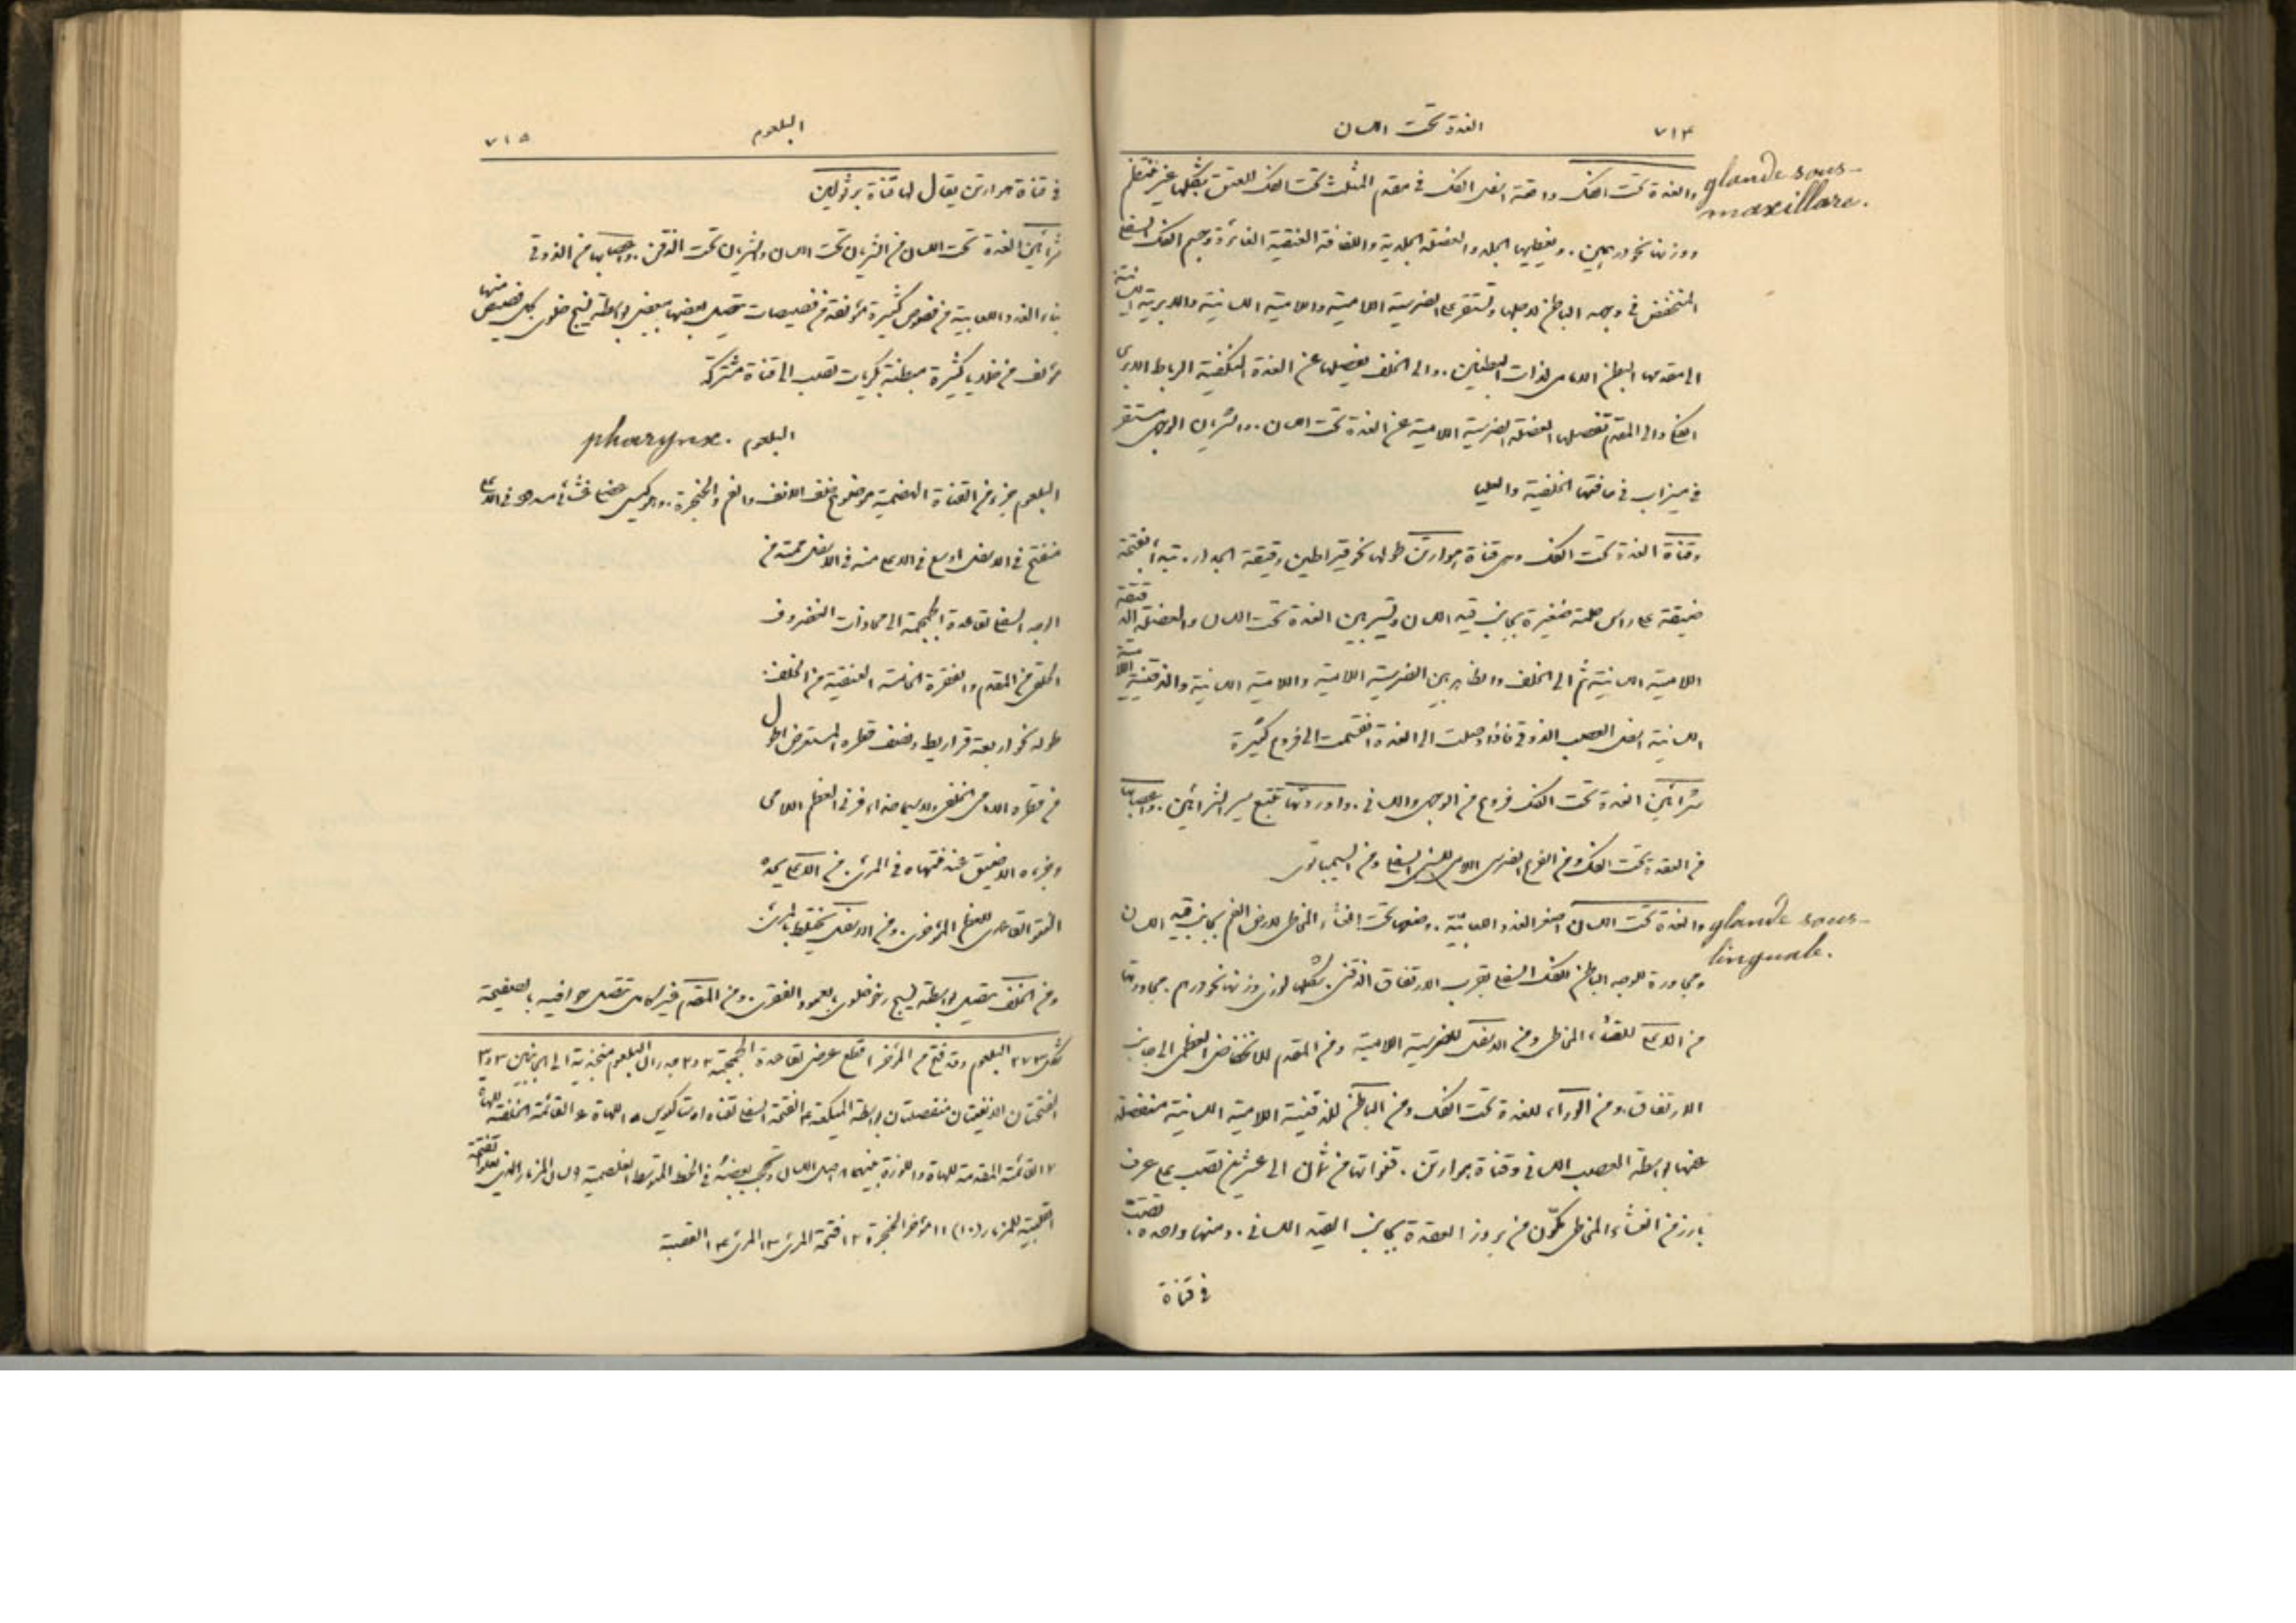 ٧١٤ الغدة تحت اللسان
glande sous-
maxillare.
والغدة تحت الفك واقعة اسفل الفك فى مقدم المثلث تحت الفك للعنق شكلها غير منتظم
ووزنها نحو درهمين. ويغطيها الجلد والعضلة الجلدية واللفافة العنقية الغائرة وجسم الفك السفلى
المنخفض فى وجهه الباطن لاجلها وتستقر على الضرسية اللامية واللامية اللسانية والابرية اللسانية
الى مقدمها البطن المقدم لذات البطنين. والى الخلف يفصلها عن الغدة النكفية الرباط الابرى
الفكى والى المقدم تفصلها العضلة الضرسية اللامية عن الغدة تحت اللسان. والشريان الوجهى مستقر
فى ميزاب فى حافتها الخلفية والعليا
وقناة الغدة تحت الفك وهى قناة هوارتن طولها نحو قيراطين رقيقة الجدار. تبدأ بفتحة
ضيقة على راس حلمة صغيرة بجانب قيد اللسان وتسير بين الغدة تحت اللسان والعضلة الذقنية
اللامية اللسانية ثم الى الخلف والظاهر بين الضرسية اللامية واللامية اللسانية والذقنية اللامية
اللسانية اسفل العصب الذوقى فاذا وصلت الى الغدة انقسمت الى فروع كثيرة
شرائين الغدة تحت الفك فروع من الوجهى واللسانى. واوردتها تتبع سير الشرائين. واعصابها
من العقدة تحت الفك ومن الفرع الضرسى اللامى للسنى السفلى ومن السيمباتوى
glande sous-
linguale.
والغدة تحت اللسان اصغر الغدد اللعابية. وضعها تحت الغشاء المخاطى لارض الفم بجانب قيد اللسان
ومجاورة للوجه الباطن للفك السفلى بقرب الارتفاق الذقنى. شكلها لوزى وزنها نحو درهم. مجاورتها
من الاعلى للغشاء المخاطى ومن الاسفل للضرسية اللامية ومن المقدم للانخفاض العظمى الى جانب
الارتفاق. ومن الوراء للغدة تحت الفك ومن الباطن للذقنية اللامية اللسانية منفصلة
عنها بواسطة العصب اللسانى وقناة هوارتن. قنواتها من ثمان الى عشرين تصب على عرف
بارز من الغشاء المخاطى مكون من بروز الغدة بجانب القيد اللسانى. ومنها واحدة تصب
فى قناة
البلعوم ٧١٥
فى قناة هوارتن يقال لها قناة برثولين
شرائين الغدة تحت اللسان من الشريان تحت اللسان والشريان تحت الذقن. واعصابها من الذوقى
بناء الغدد اللعابية من فصوص كثيرة مؤلفة من فصيصات يتصل بعضها ببعض بواسطة نسيج خلوى كل فصيص منها
مؤلف من خلايا كثيرة مبطنة بكريات تصب الى قناة مشتركة
البلعوم . pharynx
البلعوم جزء من القناة الهضمية موضوع خلف الانف والفم والحنجرة. وهو كيس عضلى غشائى مسدود فى الاعلى
منفتح فى الاسفل اوسع فى الاعلى منه فى الاسفل ممتد من
الوجه السفلى لقاعدة الجمجمة الى محاذات الغضروف
الحلقى من المقدم والفقرة الخامسة العنقية من الخلف.
طوله نحو اربعة قراريط ونصف قطره المستعرض اطول
من قطره الامامى الخلفى ولاسيما حذاء قرنى العظم اللامى
وجزءه الاضيق عند منتهاه فى المرئ. من الاعلى يحده
النتو القاعدى للعظم المؤخرى. ومن الاسفل يختلط بالمرئ
ومن الخلف يتصل بواسطة نسيج رخو خلوى بالعمود الفقرى. ومن المقدم غير كامل تتصل حوافيه بالصفيحة
شكل ٢٧٣ البلعوم وقد فتح من المؤخر ١ قطع عرضى لقاعدة الجمجمة ٢ و٢ جدران البلعوم منجذبة الى الجانبين ٣ و٣
الفتحتان الانفيتان منفصلتان بواسطة الميكعة ٤ الفتحة السفلى لقناة اوستاكيوس ٥ اللهاة ٦ القائمة الخلفية للهاة
٧ القائمة المقدمة للهاة واللوزة بينهما ٨ اصل اللسان ٩ لسان المزمار
للمزمار (١٠) ١١ مؤخر الحنجرة ١٢ فتحة المرئ ١٣ المرئ ١٤ القصبة